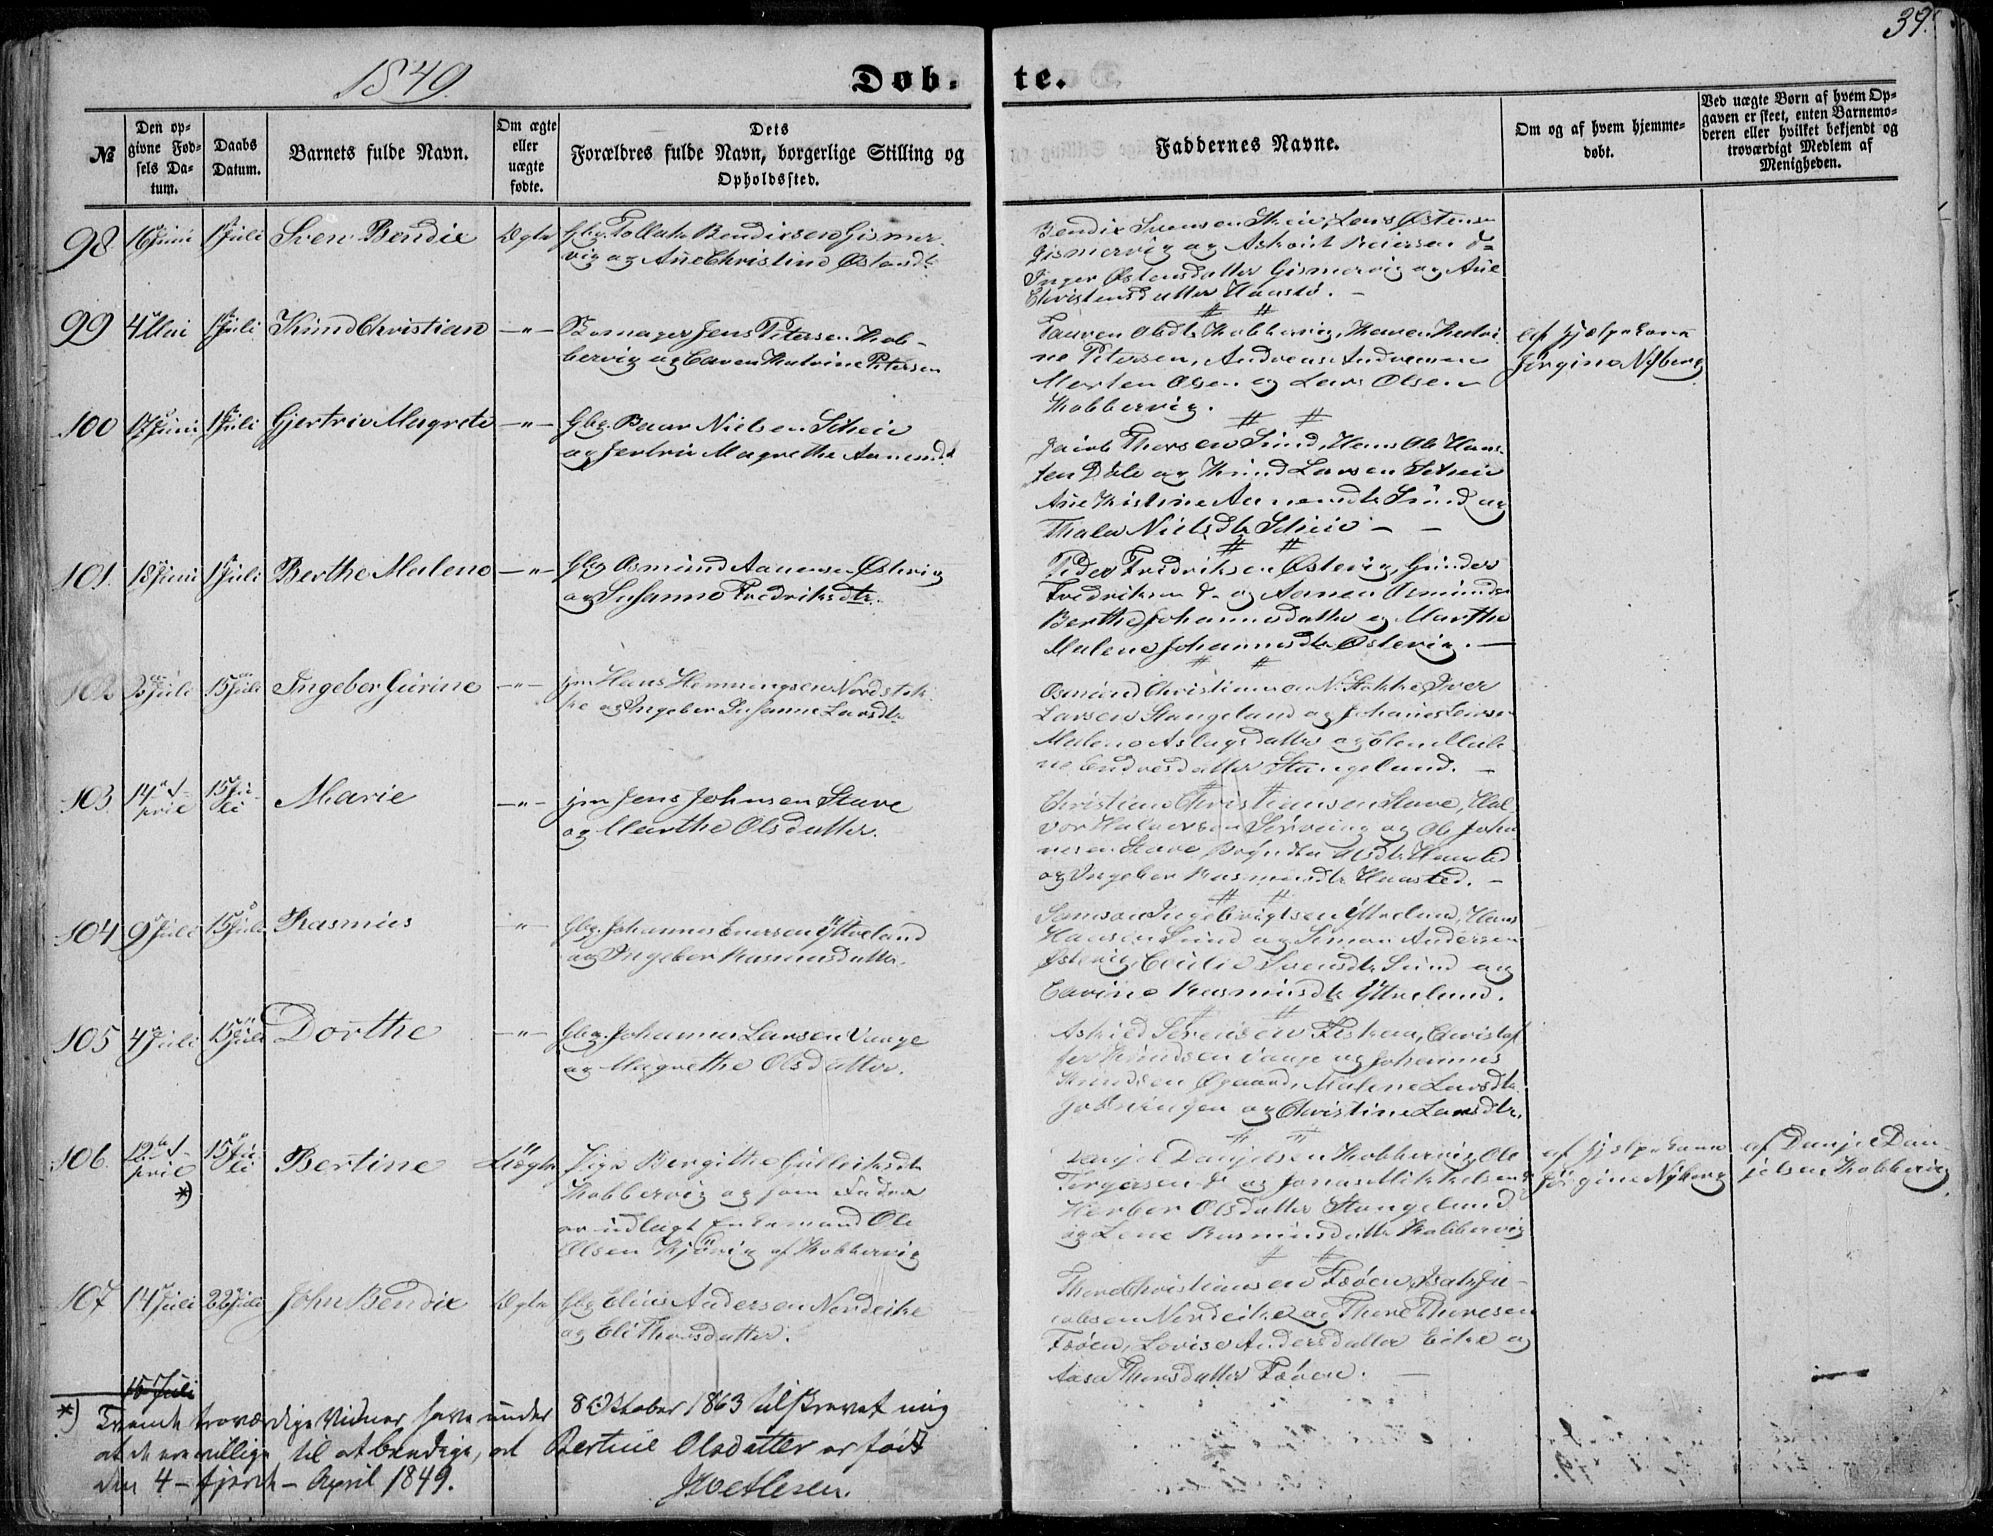 39.
1849.
Døb- te.
№
Den op-
givne Fød-
sels Da-
tum.
Daabs
Datum.
Barnets fulde Navn.
Om ægte
eller
uægte
fødte.
Dets
Forældres fulde Navn, borgerlige Stilling og
Opholdssted.
Faddernes Navne.
Om og af hvem hjemme-
døbt.
Ved uægte Børn af hvem Op-
gaven er skeet, enten Barnemo-
deren eller hvilket bekjendt og
troværdigt Medlem af
Menigheden.
98 16 Juni 1 Juli Sven Bendix Ægte Gbg. Tollak Bendixsen Gismer-
vig og Ane Christine Østensdt.
Bendix Svensen Skeie, Lars Østensen
Gismervig og Reiersen d=
Inger Østensdatter Gismervig og Ane
Christensdatter Haasto. –
99 4 Mai 1 Juli Knud Christian –"– Jens Petersen Kob-
bervig og Caren Katrine Petersen
Olsdtr Kobbervig, Karen Katri-
ne Petersen, Andreas Andreasen
Morten Olsen og Lars Olsen
Kobbervig.
af Hjelpekone
Jørgine Nyberg
100 17 Juni 1 Juli Gjertrie Magrete –"– Gbg. Baar Nielsen Scheie
og Jertrie Magrethe Aanensdt
Jacob Thorsen Sund, Hans Ols Han-
sen Døle og Knud Larsen Scheie
Ane Kristine Aanensdtr Sund og
Thala Nielsdtr Scheie – –
101. 18 Juni 1 Juli Berthe Malene –"– Gbg Osmund Aanensen Østevig
og Susanne Fredriksdtr.
Peder Fredriksen Østevig, Gunder
Fredriksen d– og Aanen Osmunds.
Berthe Johannesdatter og Marthe
Malene Johannesdtr Østevig. –
102 2 Juli 15 Juli Ingeber Gurine –"– jm Hans Hemmingsen Nordstok-
ke og Ingeber Susanne Larsdtr
Osmund Christiansen N. Stokke Iver
Larsen Stangeland og Johannes Iversen
Malene Aslagsdatter og Elen Male-
ne Endresdatter Stangeland. –
103 14 A-
pril 15 Ju-
li Marie –"– jm Jens Johnsen Stave
og Marthe Olsdatter.
Christian Christiansen Stave, Hal-
vor Halversen Sørvaag og Ole Joha-
nesen Stave Olsdtr Haasted
og Ingeber Rasmusdtr Haasted. –
104 9 Juli 15 Juli Rasmus –"– Gbg. Johannes Enersen Yttreland
og Ingeber Rasmusdatter.
Samson Ingebrigtsen Yttreland, Hans
Hansen Sund og Simon Andersen
Østevig, Cecilie Svensdtr Sund og
Carine Rasmusdtr Yttreland.
105 4 Juli 15 Juli Dorthe –"– Gbg. Johannes Larsen Vaage
og Magrethe Olsdatter.
Sørensen Fiskaa, Christof-
fer Knudsen Vaage og Johannes
Knudsen Øgaard, Malene Larsdtr
og Christine Larsdtr.
106. 12 A-
pril *) 15 Ju-
li Bertine Uægte Pige Bergithe Gulleiksdtr
Kobbervig og som Fader
er udlagt Enkemand Ole
Olsen Kjørvig af Kobbervig
Danjel Danjelsen Kobbervig, Ole
Torgersen d– og Jonas Mikkelsen d–
Herber Olsdatter Stangeland
og Lene Rasmusdatter Kobbervig
af Hjelpekone
Jørgine Nyberg
af Danjel Dan-
jelsen Kobbervig
107. 14 Juli 22 Juli John Bendix Ægte Gbg Elias Andersen Nordeike
og Eli Thorsdatter.
Thore Christiansen Fæøen, Isak Ja-
cobsen Nordeike og Thore Thoresen
Fæøen, Lovise Andersdatter Eike og
Aasa Thorsdatter Fæøen. –
15 Juli
*) Tvende troværdige Vidner have under 8 Oktober 1863 tilskrevet mig
at de ere villige til at beedige, at Bertine Olsdatter er født
den 4 – fjerde – April 1849. Hvetlesen.